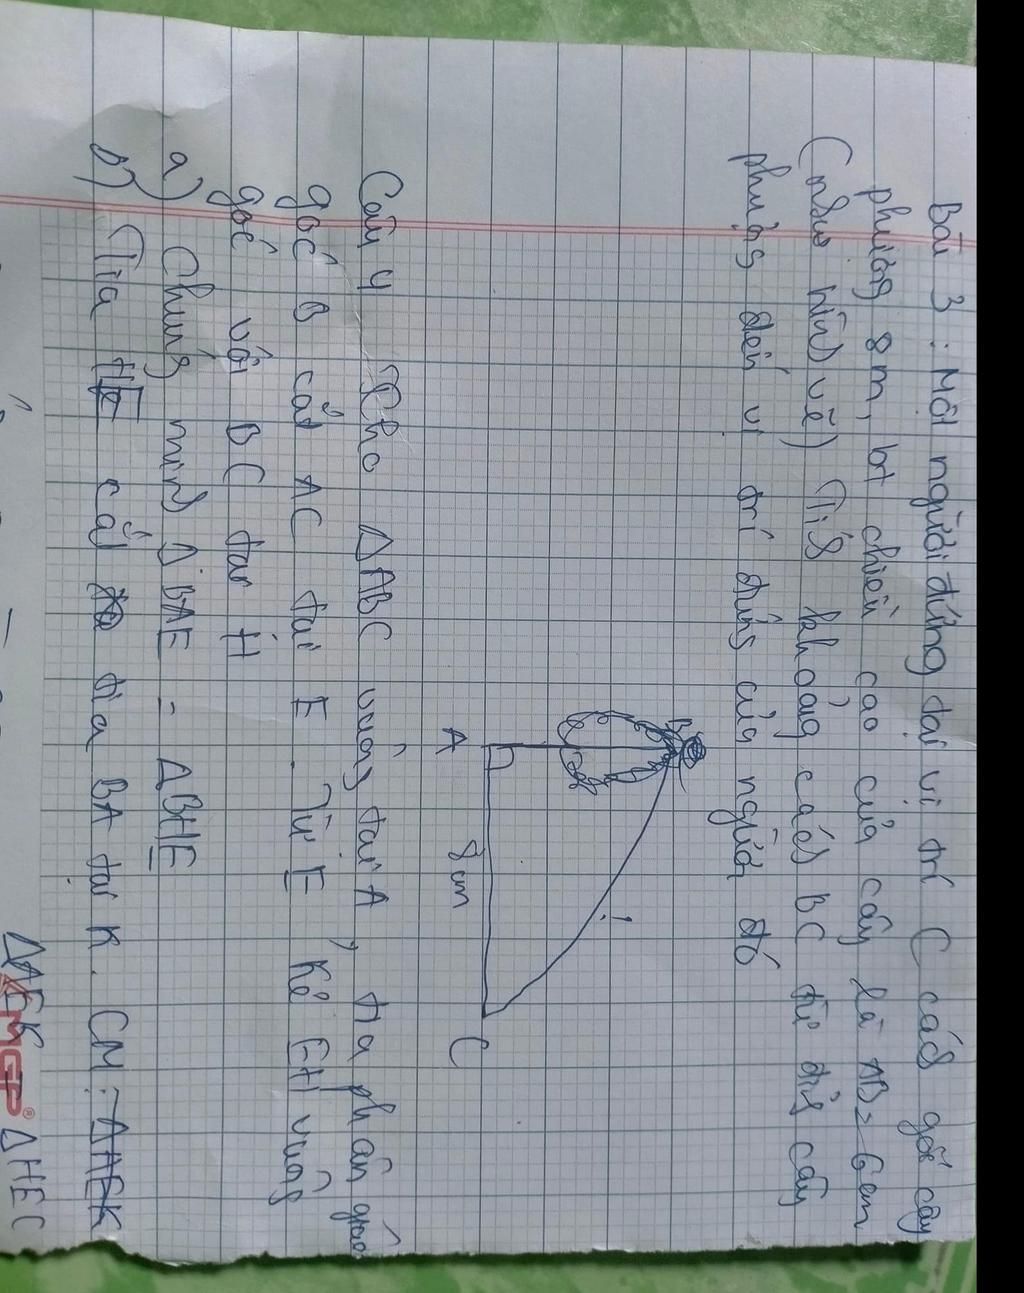 Bài 3 : Một người đứng tại vị trí C cách gốc cây
phượng 8m, bt chiều cao của cây là AB = 6cm
(như hình vẽ) Tính khoảng cách BC từ đỉnh cây
phượng đến vị trí đứng của người đó
B
A
8m
C
Câu 4 Cho ΔABC vuông tại A, tia phân giác
góc B cắt AC tại E. Từ E kẻ EH vuông
góc với BC tại H
a) Chứng minh ΔBAE = ΔBHE
b) Tia HE cắt tia BA tại K. CM: ΔHEK
ΔAEK ΔHEC
MGP®